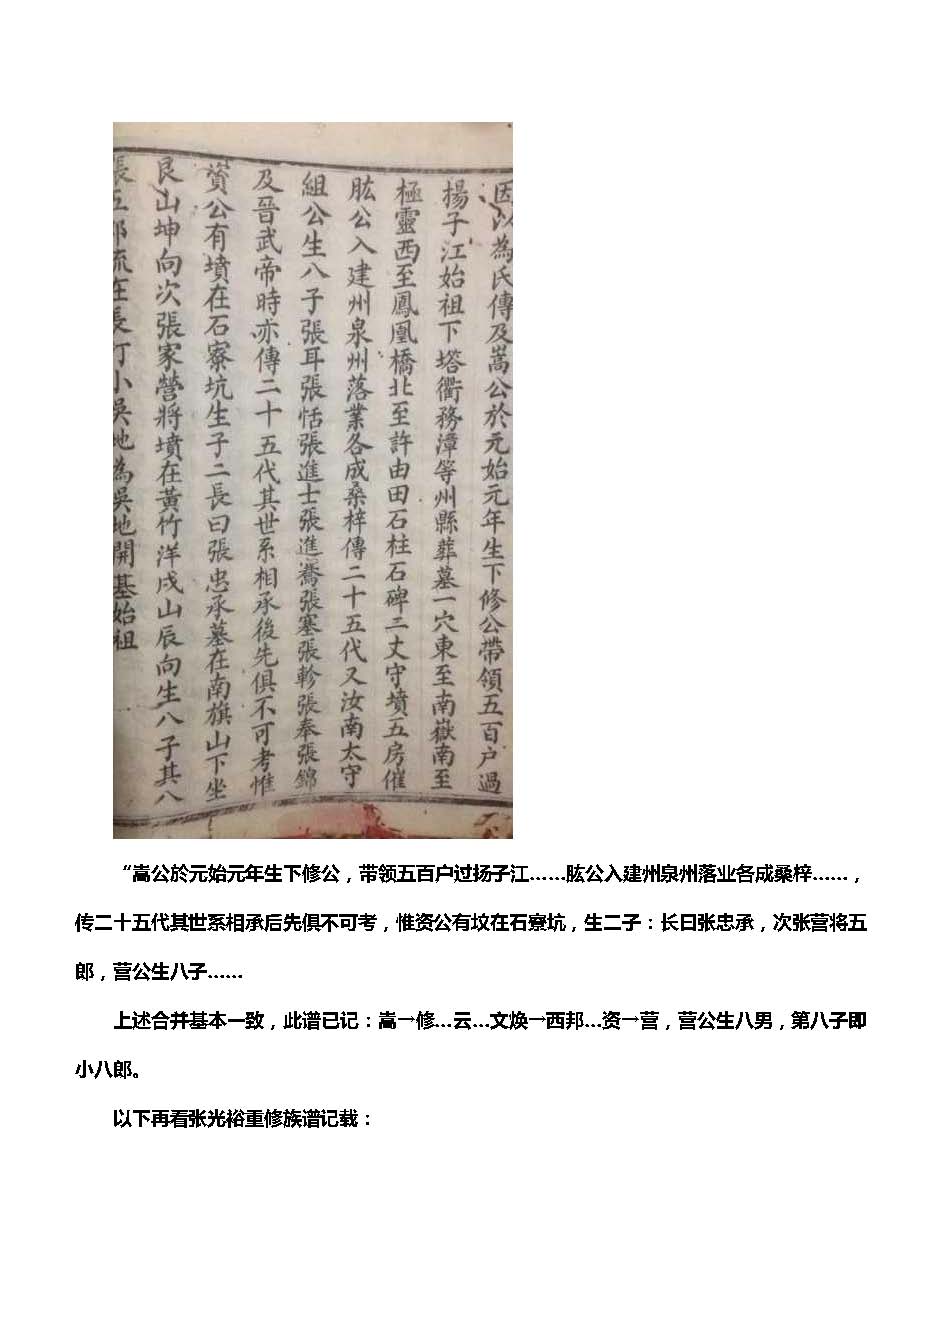 因以為氏傳及嵩公於元始元年生下修公帶領五百户過
揚子江始祖下塔衢務漳等州縣葬墓一穴東至南嶽南至
極靈西至鳳凰橋北至許由田石柱石碑三丈守墳五房催
肱公入建州泉州落業各成桑梓傳二十五代又汝南太守
組公生八子張耳張恬張進士張進騫張塞張軫張奉張錦
及晉武帝時亦傳二十五代其世系相承後先俱不可考惟
資公有墳在石寮坑生子二長曰張忠承墓在南旗山下坐
艮山坤向次張家營將墳在黃竹洋戌山辰向生八子其八
張五郎流在長汀小吳地為吳地開基始祖
“嵩公於元始元年生下修公，带领五百户过扬子江……肱公入建州泉州落业各成桑梓……，
传二十五代其世系相承后先俱不可考，惟资公有坟在石寮坑，生二子：长曰张忠承，次张营将五
郎，营公生八子……
上述合并基本一致，此谱已记：嵩→修…云…文焕→西邦…资→营，营公生八男，第八子即
小八郎。
以下再看张光裕重修族谱记载：